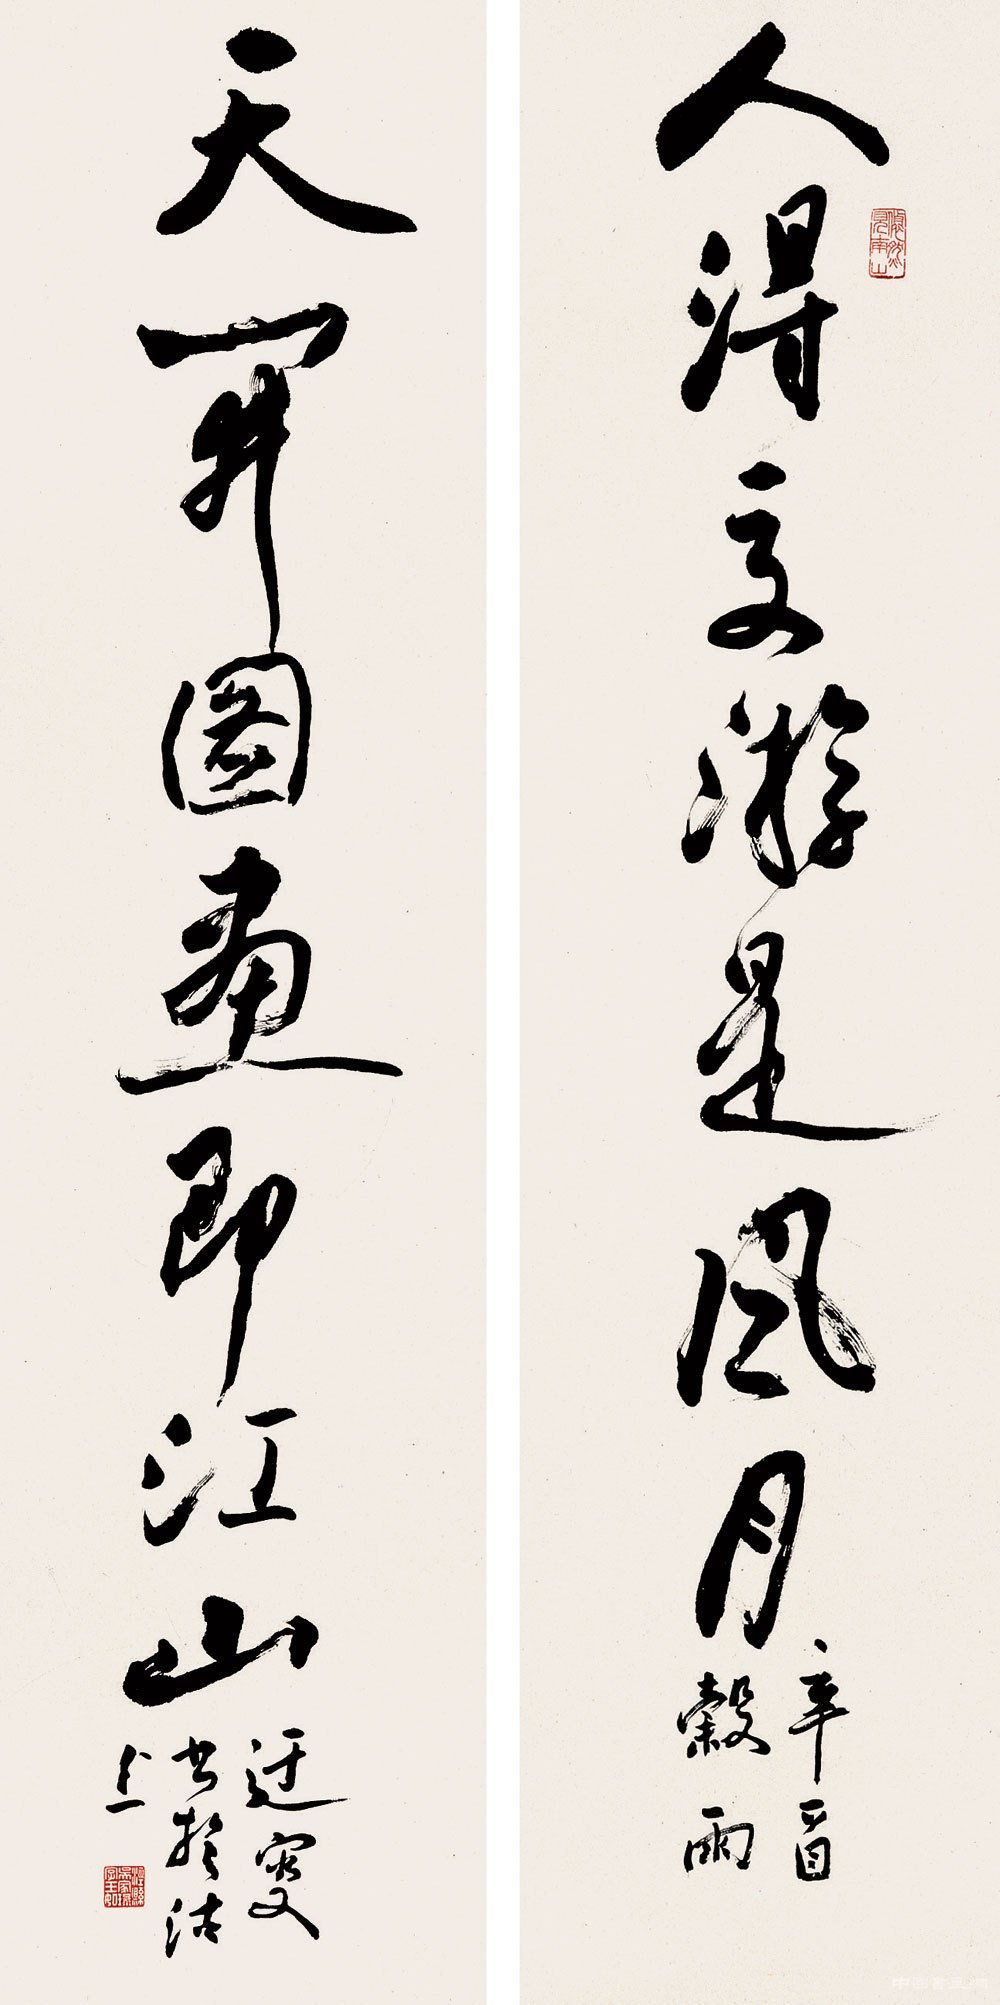 人得交游是风月
辛酉
榖雨
天开圖画即江山
迂叟
书於沽
上